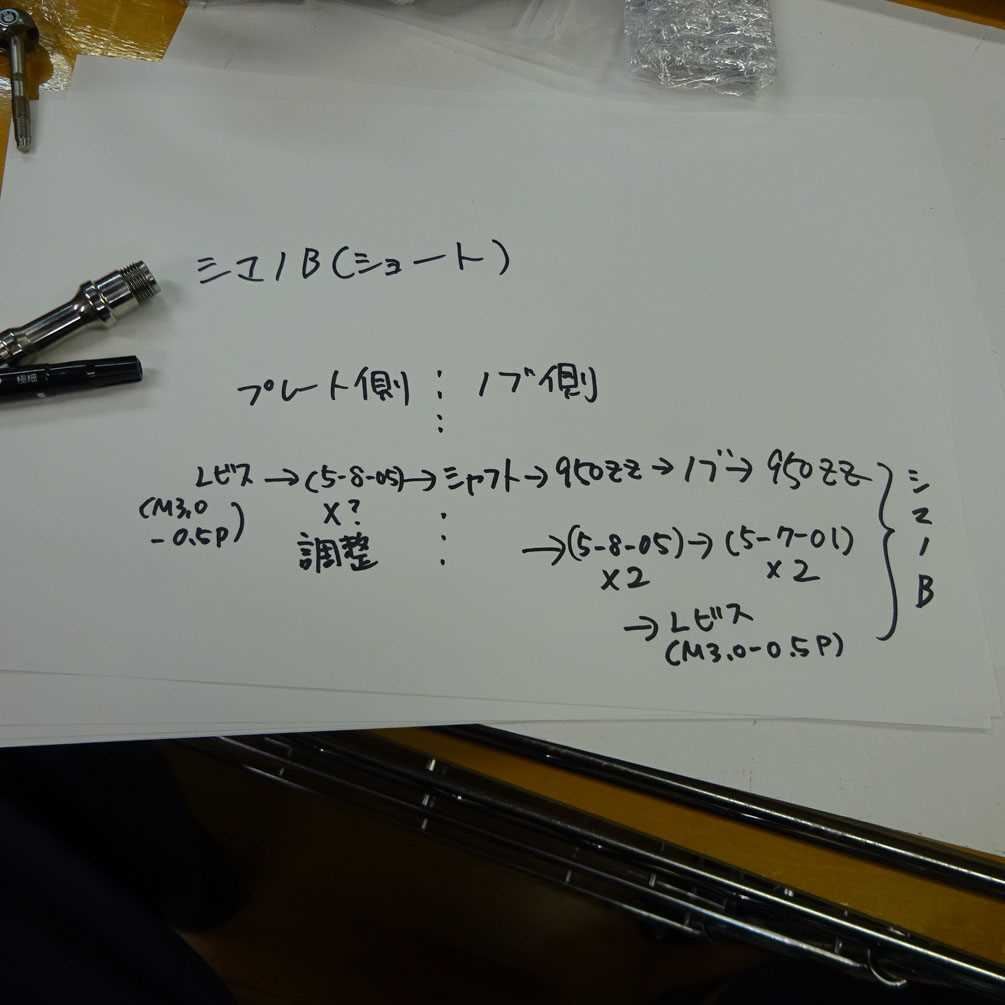 シマノB(ショート)
プレート側 : ノブ側
Lビス→(5-8-05)→シャフト→950ZZ→ノブ→950ZZ
(M3.0-0.5P)
×?
調整
→(5-8-05)→(5-7-01)
×2 ×2
→Lビス
(M3.0-0.5P)
シマノB
極細